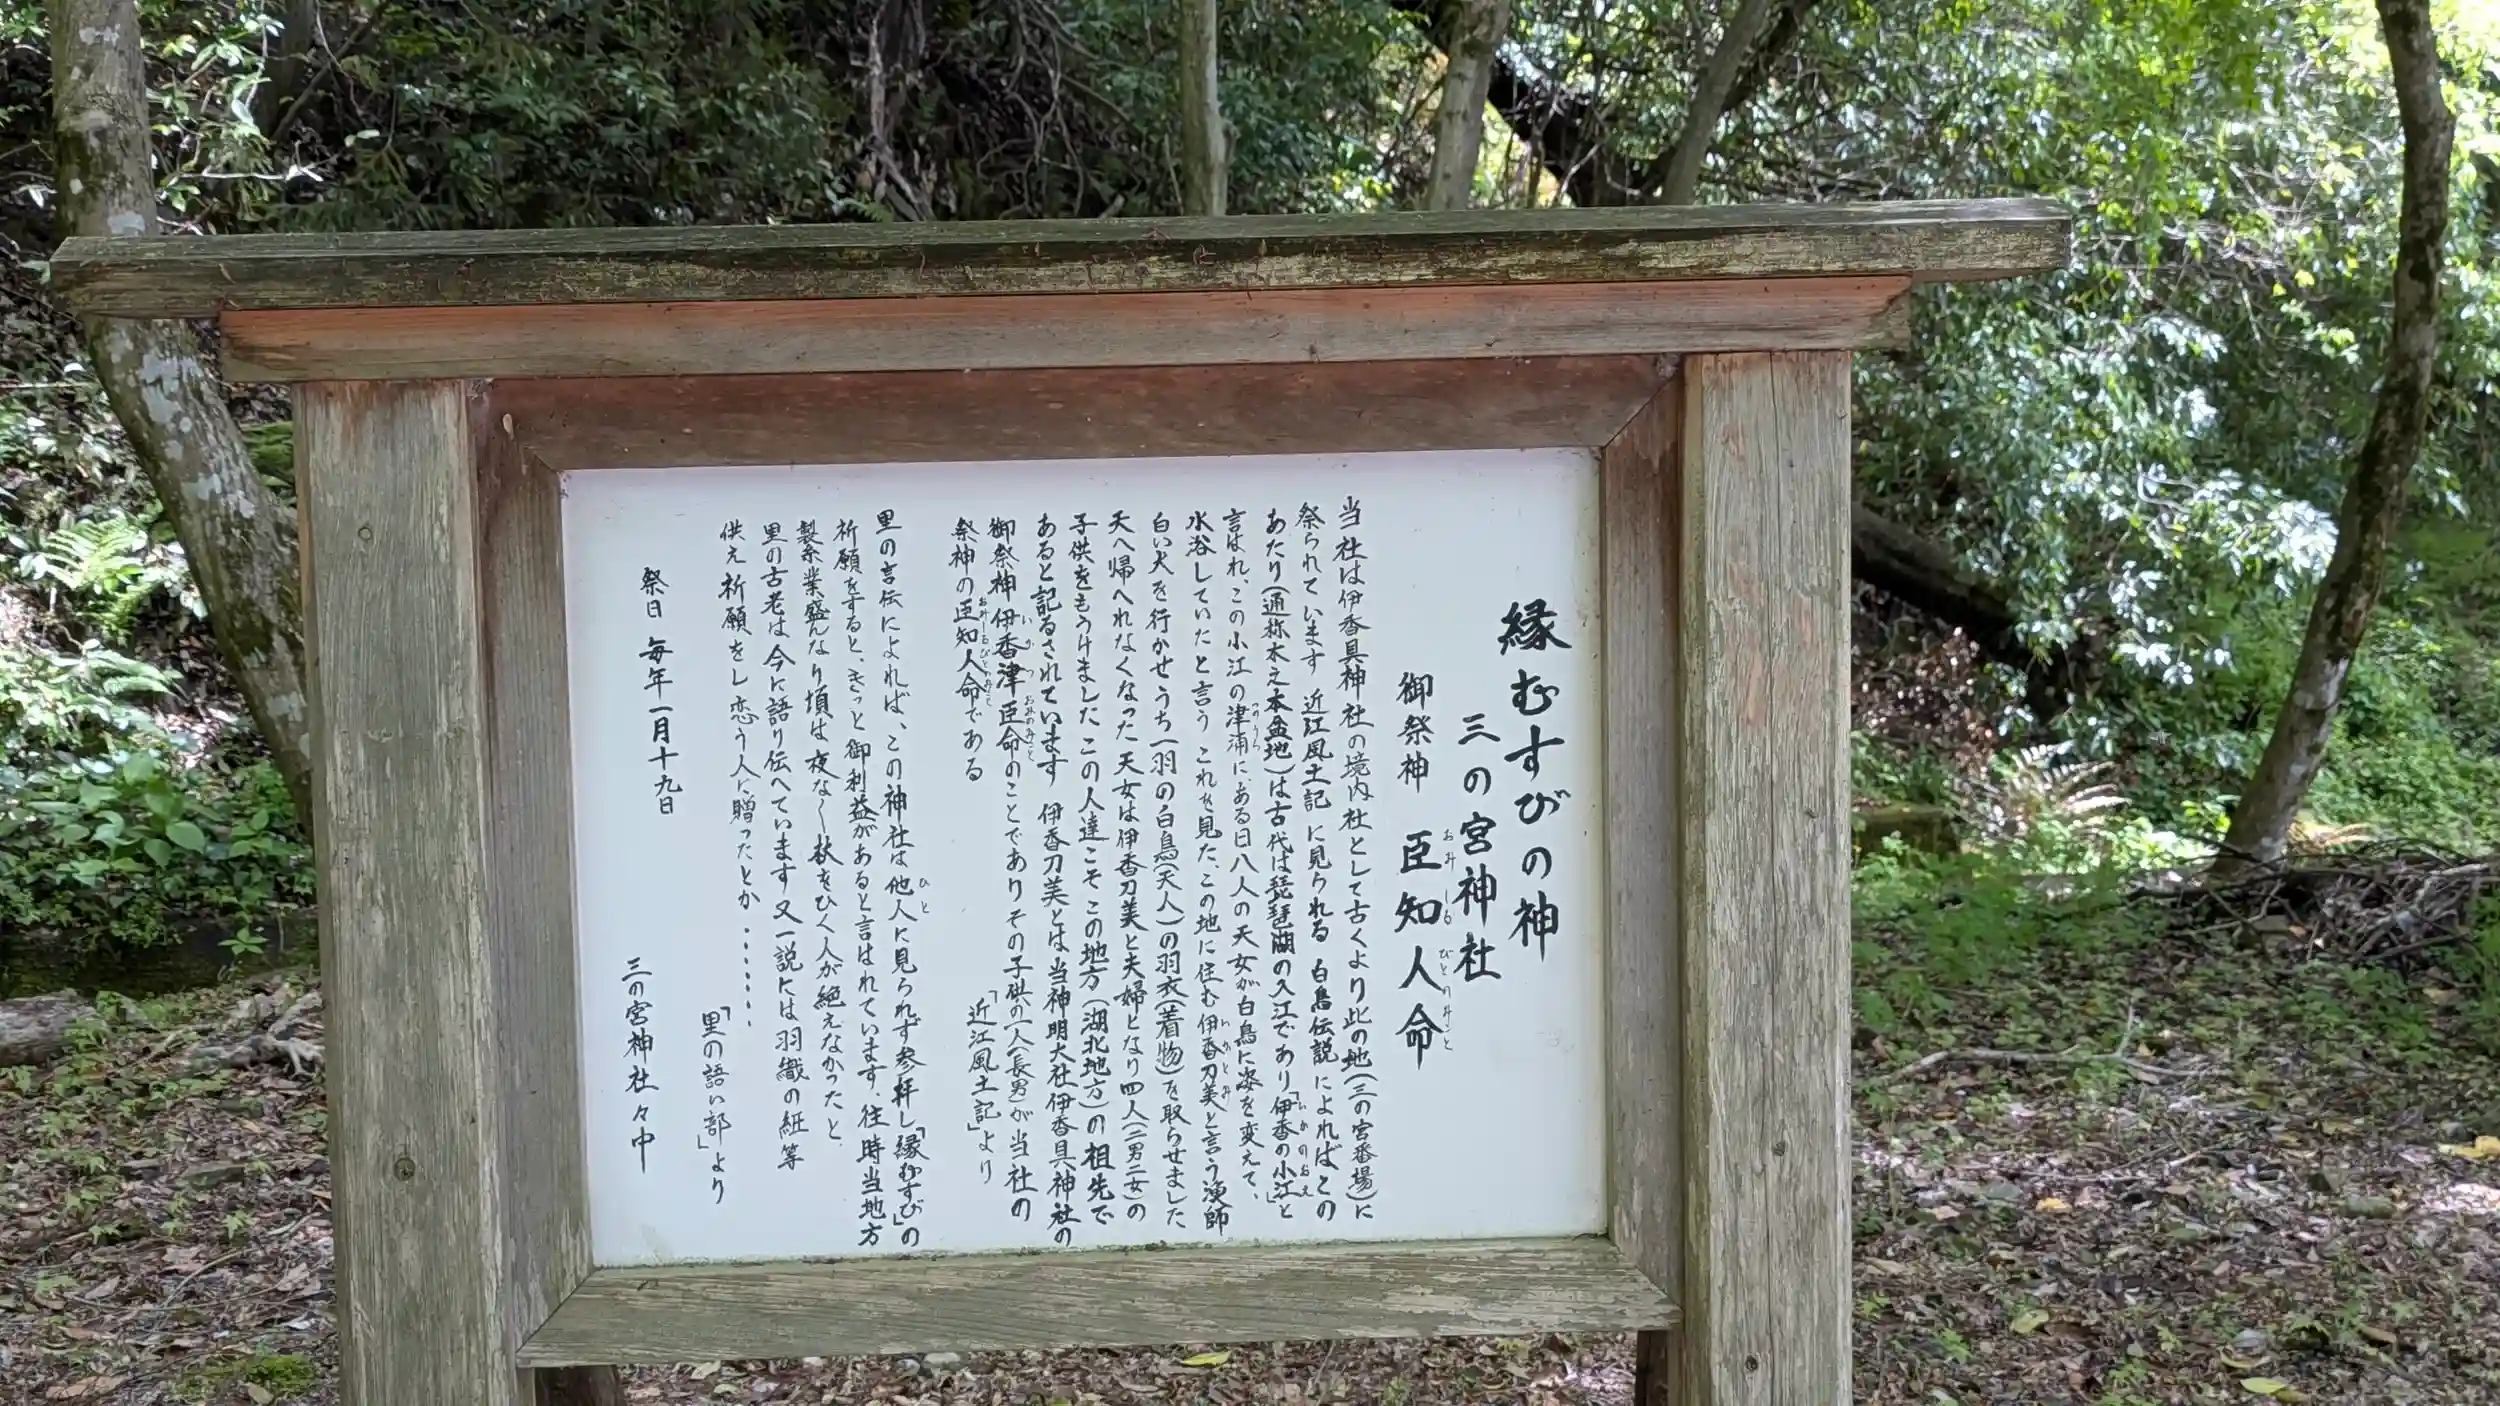 縁むすびの神
三の宮神社
御祭神 臣知人命
おみ しる びとのみこと
当社は伊香具神社の境内社として古くより此の地(三の宮番場)に
祭られています 近江風土記に見られる 白鳥伝説によればこの
あたり(通称木之本盆地)は古代は琵琶湖の入江であり「伊香の小江」と
いかのおえ
言はれ、この小江の津浦に、ある日八人の天女が白鳥に姿を変えて、
つのうら
水浴していたと言う これを見た、この地に住む伊香刀美と言う漁師
いかとみ
白い犬を行かせうち一羽の白鳥(天人)の羽衣(着物)を取らせました
天へ帰へれなくなった天女は伊香刀美と夫婦となり四人(二男二女)の
子供をもうけました この人達こそこの地方(湖北地方)の祖先で
あると記るされています 伊香刀美とは当神明大社伊香具神社の
御祭神 伊香津臣命のことでありその子供の一人(長男)が当社の
いかつ おみのみこと
祭神の臣知人命である
おみしるびとのみこと
「近江風土記」より
里の言伝によれば、この神社は他人に見られず参拝し「縁むすび」の
ひと
祈願をすると、きっと御利益があると言はれています、往時当地方
製糸業盛んなり頃は夜な〜杖をひく人が絶えなかったと
里の古老は今に語り伝へています 又一説には羽織の紐等
供え祈願をし恋う人に贈ったとか・・・・・・・
「里の語い部」より
祭日 毎年一月十九日
三の宮神社々中